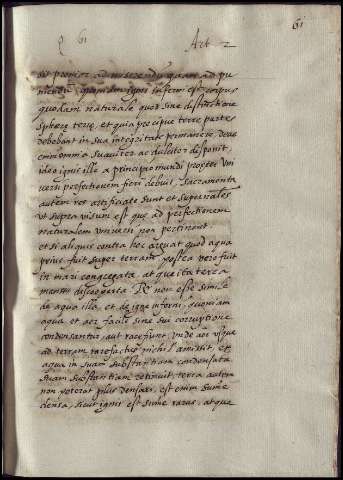 61
q 61 Art 2
sit pronior ad miserendu quam ad pu
niendu, ignis inferni est corpus
quodam naturale quod sine distinctione
sphere terre, et quia precipue terre partes
debebant in sua integritate permanere, deus
enim omnia suauiter ac dulciter disponit
ideo ignis ille a principio mundi propter Vni
versi perfectionem fieri debuit, sacramenta
autem res artificiate sunt et supernales
ut supra visum est que ad perfectionem
naturalem Vniversi non pertinent.
et si aliquis contra hec arguat quod aqua
prius fuit super terram postea vero fuit
in mari congregata, atque ita terra
mansit discooperta. non esse simile
de aqua illa, et de igne inferni, quoniam
aqua et aer facile sine sui corruptione
condensantur aut rarefiunt, Vnde aer vsque
ad terram rarefactus nichil amissit et
aqua in suam substantiam condensata
suam substantiam retinuit, terra autem
non poterat plus densari, est enim sume
densa, sicut ignis est sume rarus, atque